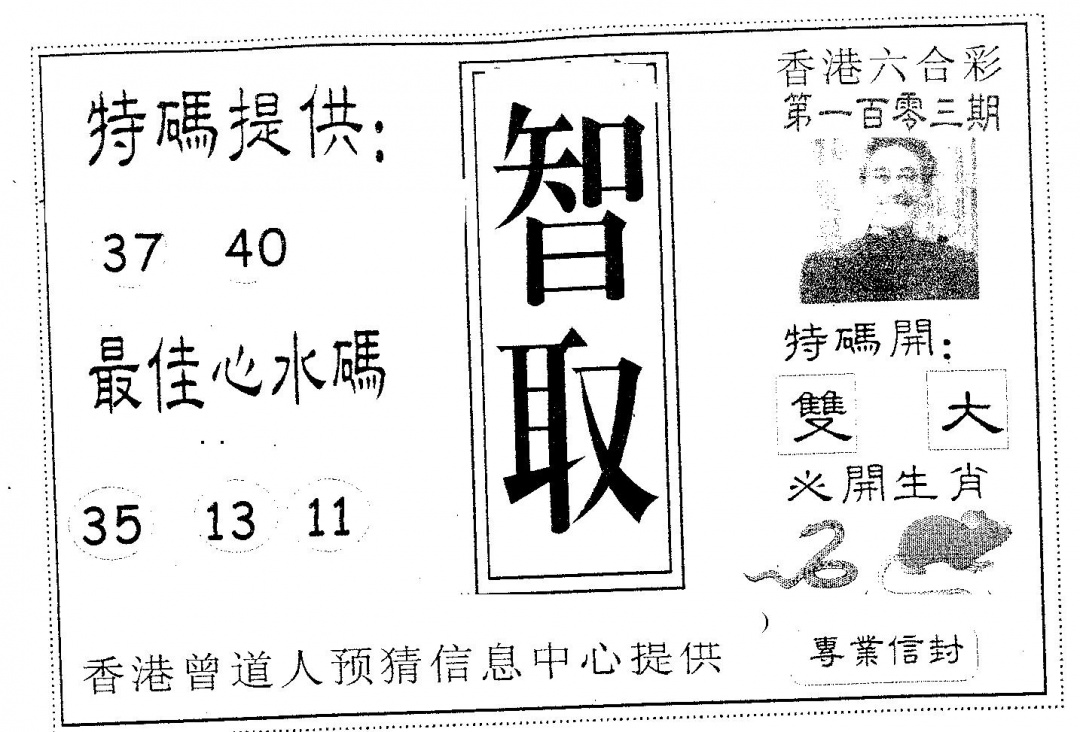 特碼提供：
37 40
最佳心水碼
35 13 11
智取
香港六合彩
第一百零三期
特碼開：
雙 大
必開生肖
專業信封
香港曾道人预猜信息中心提供